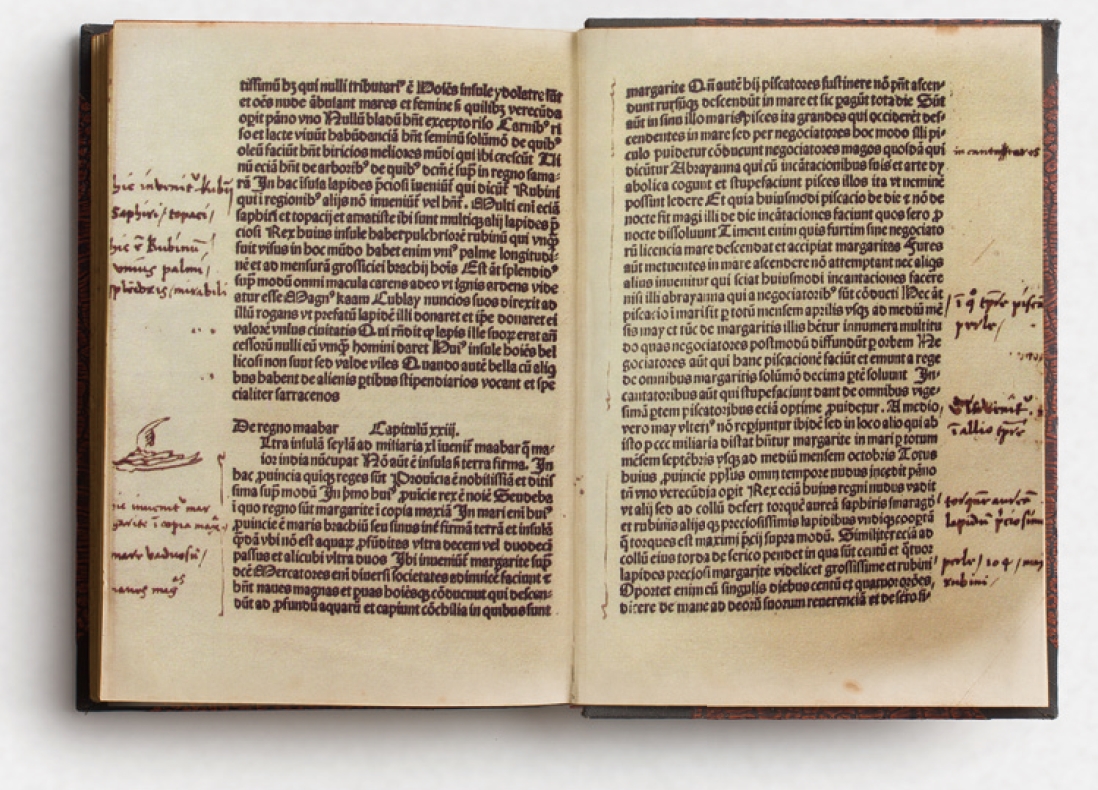 tissimū bȝ qui nulli tributari⁹ ē Hoīes insule ydolatre sūt
et oēs nude ābulant mares et femine s̄ quilibȝ verecūda
opit pāno vno Nullū bladū hn̄t excepto riso Carnib⁹ ri
so et lacte viuūt habūdanciā hn̄t seminū solūmō de quib⁹
oleū faciūt hn̄t biricios meliores mūdi qui ibi crescūt Vi
nū eciā hn̄t de arborib⁹ de quib⁹ dcm̄ ē sup̄ in regno sama-
rā In hac īsula lapides p̄ciosi īueniūt̄ qui dicūt̄ Rubini
qui ī regionib⁹ alijs nō inueniūt̄ vel hn̄t̄. Multi eni eciā
saphiri et topacij et amatiste ibi sunt multiqȝ alij lapides p̄
ciosi Rex huius insule habet pulchriorē rubinū qui vnqȝ
fuit visus in hoc mūdo habet enim vni⁹ palme longitudi-
nē et ad mensurā grossiciei brachij hoīs Est āt splendid⁹
sup̄ modū omni macula carens adeo vt ignis ardens vide
atur esse Magn⁹ kaam Cublay nuncios suos direxit ad
illū rogans vt prefatū lapidē illi donaret et ip̄e donaret ei
valorē vnius ciuitatis Q ui rn̄dit qȝ lapis ille suoȝ erat an̄
cessorū nulli eū vnqȝ homini daret Hui⁹ insule hoīes bel
licosi non sunt sed valde viles Q uando autē bella cū aliq̄
bus habent de alienis ꝑtibus stipendiarios vocant et spe
cialiter sarracenos
De regno maabar Capitulū xxiii.
Vltra insulā seylā ad miliaria xl īuenit̄ maabar q̄ ma-
ior india nūcupat̄ Nō aūt ē insula s̄ terra firma. In
hac ꝓuincia quīqȝ reges sūt Prouīcia ē nobilissīa et ditis
sima sup̄ modū In p̄mo hui⁹ ꝓuīcie rex ē noīe Sendeba
ī quo regno sūt margarite ī copia maxīa In mari eni hui⁹
ꝓuincie ē maris brachiū seu sinus īne firmā terrā et insulā
q̄dā vbi nō est aquaȝ ꝓfūditas vltra decem vel duodecī
passus et alicubi vltra duos Ibi īueniūt̄ margarite sup̄
dcē Mercatores eni diuersi societates adinuicē faciunt ⁊
hn̄t naues magnas et ꝑuas hoīesqȝ cōducunt qui descen-
dūt ad ꝓfundū aquarū et capiunt cōchilia in quibus sunt
hic inveniūt̄ Rubinj
Saphiri / topacj /
hic ē Rubinus
vnius palmi /
margarite ī copia max̄
mare vadosū /
margarite Q n̄ autē hij piscatores sustinere nō pn̄t ascen-
dunt rursūqȝ descendūt in mare et sic ꝑagūt tota die Sūt
aūt in sinu illo maris pisces ita grandes qui occiderēt des-
cendentes in mare sed per negociatores hoc modo illi pi-
culo ꝓuidetur cōducunt negociatores magos quosdā qui
dicūtur Abrayanna qui cū incātacionibus suis et arte dy
abolica cogunt et stupefaciunt pisces illos ita vt neminē
possint ledere Et quia huiusmodi piscacio de die ⁊ nō de
nocte fit magi illi de die incātaciones faciunt quos sero ꝓ
nocte dissoluunt Timent enim quis furtim sine negociato
rū licencia mare descendat et accipiat margaritas Fures
aūt metuentes in mare ascendere nō attemptant nec aliqs
alius inuenitur qui sciat huiusmodi incantaciones facere
nisi illi abrayanna qui a negociatorib⁹ sūt cōducti Hec āt
piscacio ī mari fit ꝑ totū mensem aprilis vsqȝ ad mediū mē
sis may et tūc de margaritis illis hētur innumera multitu
do quas negociatores postmodū diffundūt ꝑ orbem Ne
gociatores aūt qui hanc piscacionē faciūt et emunt a rege
de omnibus margaritis solūmō decimā ꝑtē soluunt In-
cantatoribus aūt qui stupefaciunt dant de omnibus vige-
simā ꝑtem piscatoribus eciā optime ꝓuidetur. A medio
vero may vlteri⁹ nō reꝑiuntur ibidē sed in loco alio qui ab
isto ꝑ ccc miliaria distat hn̄tur margarite in mari ꝑ totum
mēsem septēbris vsqȝ ad mediū mensem octobris Totus
huius ꝓuincie pplūs omni tempore nudus incedit pāno
tn̄ vno verecūdia opit Rex eciā hujus regni nudus vadit
vt alij sed ad collū defert torquē aureā saphiris smaragd
et rubinis alijsqȝ preciosissimis lapidibus vndiqȝ cooptā
q̄ torques est maximi p̄cij supra modū. Similiter eciā ad
collū eius torda de serico pendet in qua sūt centū et q̄tuor
lapides preciosi margarite videlicet grossissime et rubini
Oportet enim eū singulis diebus centū et quatuor orōes,
dicere de mane ad deorū suorum reuerenciā et de sero si-
incantatores
ī q̄ tp̄re piscā
perle /
ī allio tp̄re
torquē aureā
lapidū p̄ciosiss
perle / 104 /
rubini /